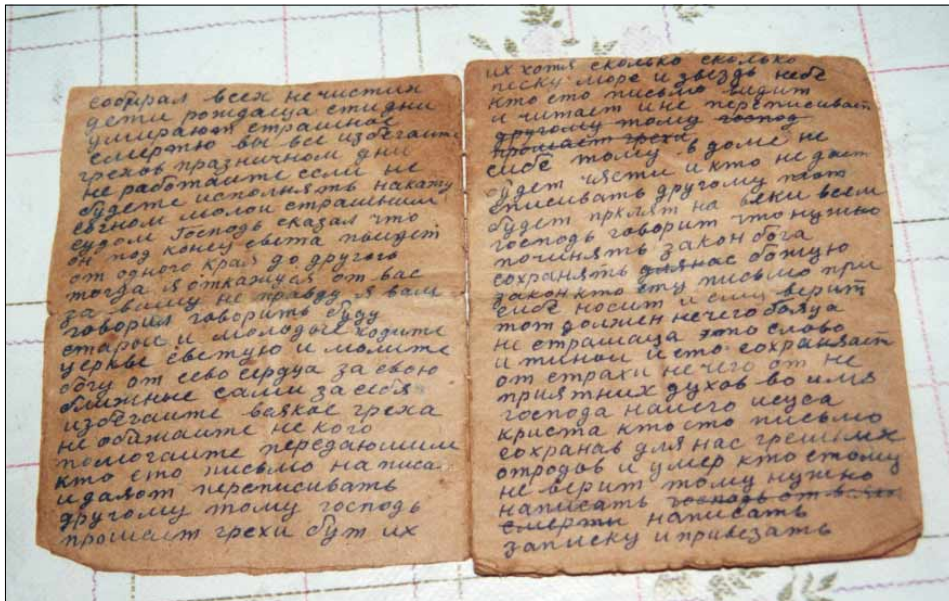 собирал всех нечистих
дети рождаща сти дни
умирают страшное
смертю вы все избегаите
грехов празничном дни
не работаите если не
будете исполнять накажу
согном молои страшним
судом Господь сказал что
он под конец света пвидет
от одного края до другого
тогда я откажуся от вас
за вашу не правду я вам
говорил говорить буду
старои и молодые ходите
церкве светую и молите
богу от сево сердуа за свою
ближные сами за себя
избегаите всякое греха
не обижаите не кого
помогаите
кто ето письмо написа
идают переписивать
другому тому господь
прощает грехи бут их
их хотя сколько сколько
песку море и звездь небе
кто ето письмо видит
и читает и не переписивает
другому тому господ
прощает грехи
себе тому в доме не
будет части и кто не дает
списивать другому тот
будет прклят на веки всем
господь говорит что нужно
починять закон бога
сохранять для нас божую
закон кто ету письмо при
себе носит и ему верит
тот должен нечего бояца
не страшаца это слово
и ето сохраняет
от страхи не чего от не
приятних духов во имя
господа нашего исуса
криста кто сто письмо
сохранав для нас грешних
отродов и умер кто етому
не верит тому нужно
написать господь от
смерти написать
записку и привезать